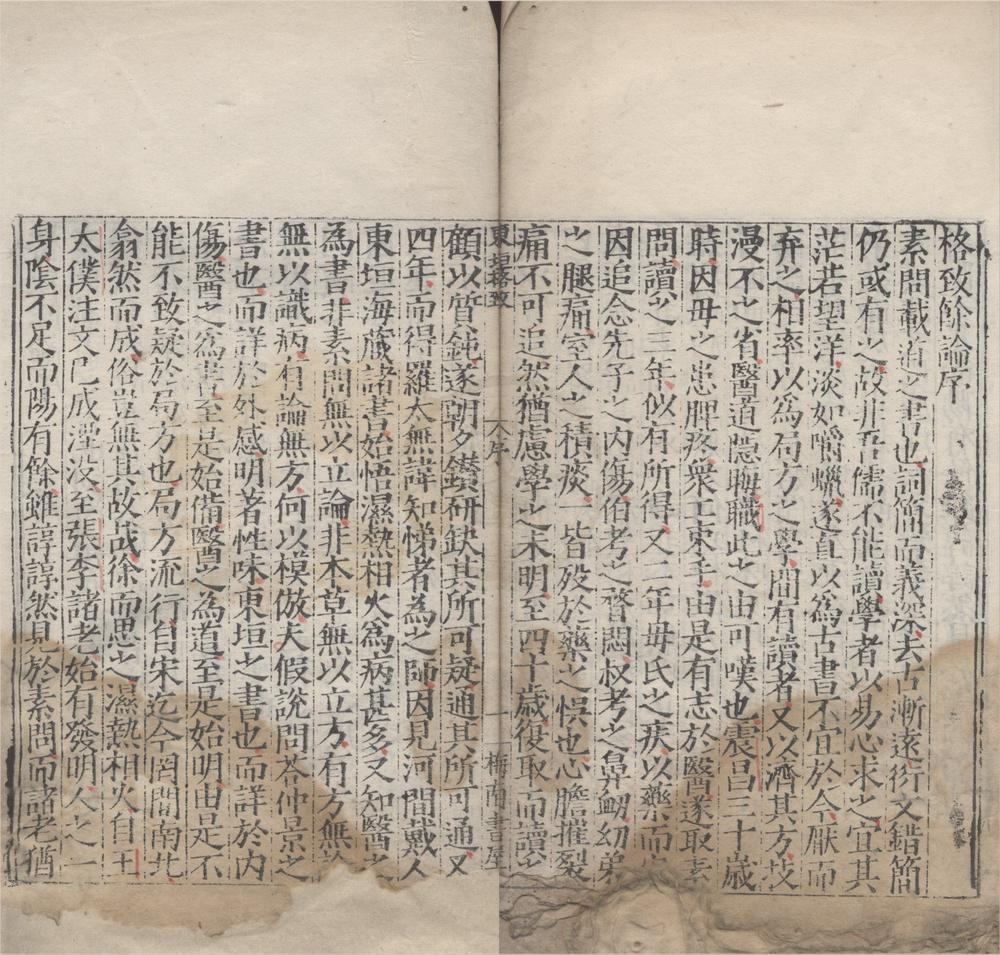 格致餘論序
素問載道之書也詞簡而義深去古漸遠衍文錯簡
仍或有之故非吾儒不能讀學者以易心求之宜其
茫若望洋淡如嚼蠟遂直以為古書不宜於今厭而
弃之相率以為局方之學間有讀者又以濟其方技
漫不之省醫道隱晦職此之由可嘆也震昌三十歲
時因母之患脾疼衆工束手由是有志於醫遂取素
問讀之三年似有所得又二年母氏之疾以藥而
因追念先子之內傷伯考之瞀悶叔考之鼻衄幼弟
之腿痛室人之積痰一皆歿於藥之悞也心膽摧裂
痛不可追然猶慮學之未明至四十歲復取而讀之
東垣格致 序 一 梅南書屋
顧以質鈍遂朝夕鑚研缺其所可疑通其所可通又
四年而得羅太無諱知悌者為之師因見河間戴人
東垣海藏諸書始悟濕熱相火為病甚多又知醫之
為書非素問無以立論非本草無以立方有方無論
無以識病有論無方何以模倣夫假說問荅仲景之
書也而詳於外感明著性味東垣之書也而詳於內
傷醫之為書至是始備醫之為道至是始明由是不
能不致疑於局方也局方流行自宋迄今罔間南北
翕然而成俗豈無其故哉徐而思之濕熱相火自王
太僕注文已成湮没至張李諸老始有發明人之一
身陰不足而陽有餘雖諄諄然見於素問而諸老猶